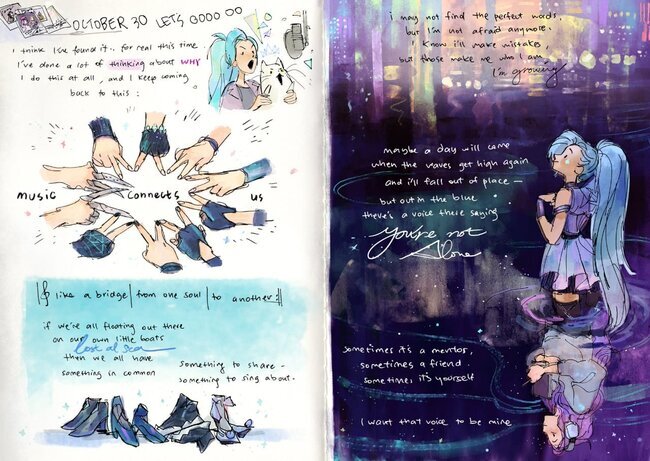 OCTOBER 30 LETS GOOO OO
I think I've found it.. for real this time
I've done a lot of thinking about WHY
I do this at all, and I keep coming
back to this:
MUSIC connects us
like a bridge from one soul to another:
if we're all floating out there
on our own little boats
Lost at sea
then we all have
something in common
something to share -
something to sing about.
i may not find the perfect words,
but I'm not afraid anymore.
I know i'll make mistakes,
but those make me who I am
I'm growing
maybe a day will come
when the waves get high again
and i'll fall out of place —
but out in the blue
there's a voice there saying
You're not
Alone
sometimes it's a mentor,
sometimes a friend.
sometimes it's yourself
I want that voice to be mine